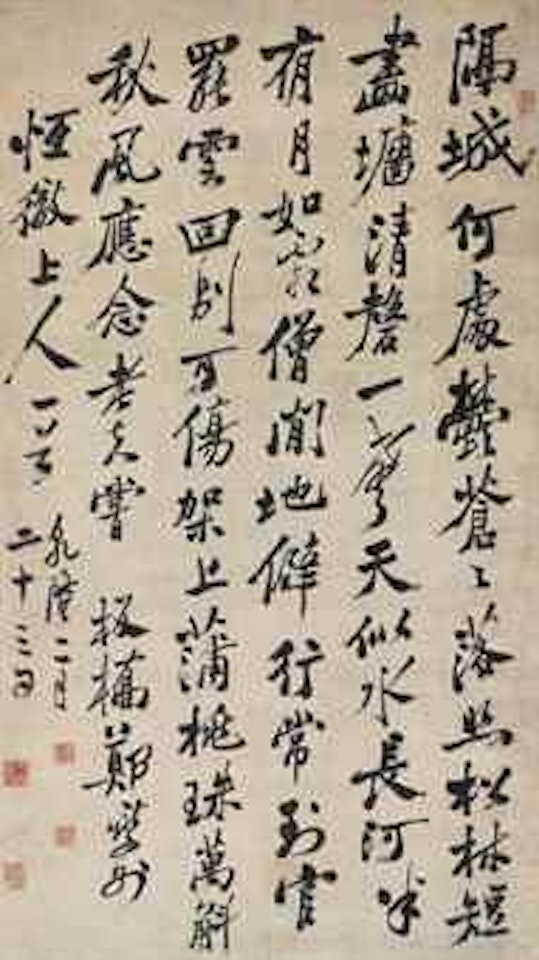 隔城何處鬱蒼々落照松林短
畵墻清磬一聲天似水長河半
夜月如霜僧閒地僻行常到官
罷雲回別可傷架上蒲桃珠萬斛
秋風應念老夫嘗 板橋鄭燮
恒徹上人一笑 乾隆二月
二十三日